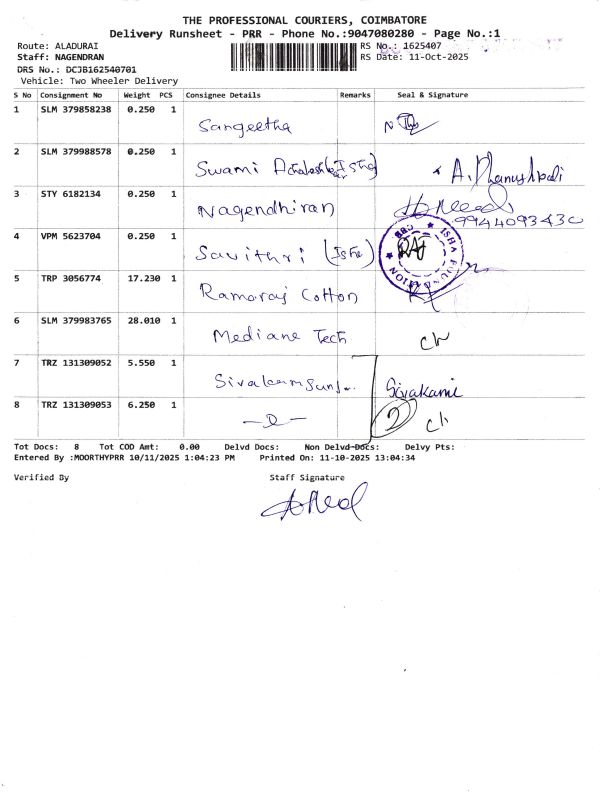 THE PROFESSIONAL COURIERS, COIMBATORE
Delivery Runsheet - PRR - Phone No.:9047080280 - Page No.:1
Route: ALADURAI RS No.: 1625407
Staff: NAGENDRAN RS Date: 11-Oct-2025
DRS No.: DCJB162540701
Vehicle: Two Wheeler Delivery
S No Consignment No Weight PCS Consignee Details Remarks Seal & Signature
1 SLM 379858238 0.250 1 Sangeetha
2 SLM 379988578 0.250 1 Swami A. Dhanushkodi
3 STY 6182134 0.250 1 Nagendhiran
9944093430
4 VPM 5623704 0.250 1 Savithri (Isha) ISHA FOUNDATION CBE
5 TRP 3056774 17.230 1 Ramaraj Cotton
6 SLM 379983765 28.010 1 Mediane Tech
7 TRZ 131309052 5.550 1 Sivakami
8 TRZ 131309053 6.250 1 2
Tot Docs: 8 Tot COD Amt: 0.00 Delvd Docs: Non Delvd-Docs: Delvy Pts:
Entered By :MOORTHYPRR 10/11/2025 1:04:23 PM Printed On: 11-10-2025 13:04:34
Verified By Staff Signature